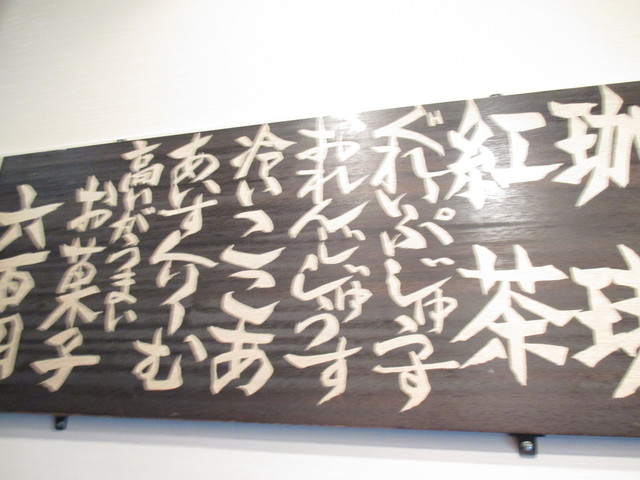 珈琲
紅茶
ぐれーぷじゅーす
おれんじじゅうす
冷いここあ
あいすくりーむ
高いがうまい
お菓子
六百円